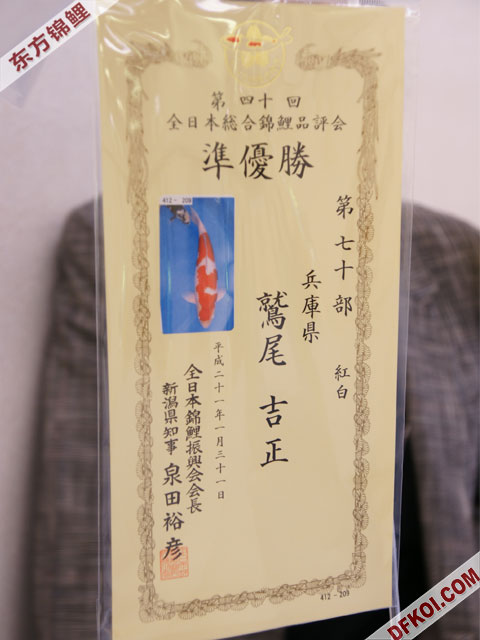 东方锦鲤
第四十回
全日本総合錦鯉品評会
準優勝
412 - 209
第七十部 紅白
兵庫県
鷲尾吉正
平成二十一年一月三十一日
全日本錦鯉振興会会長
新潟県知事 泉田裕彦
412 - 209
DFKOI.COM